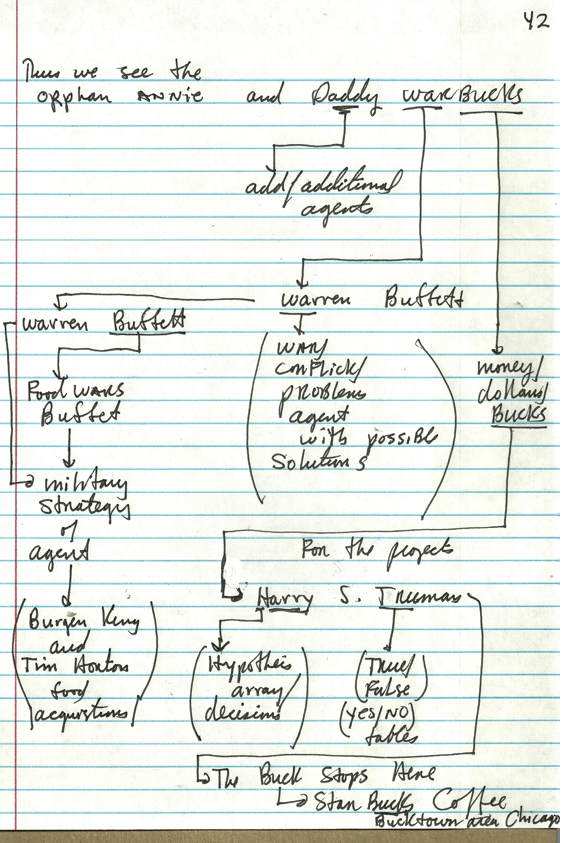 42
Thus we see the
orphan ANNIE and Daddy warBucks
add/additional
agents
warren Buffett
warren Buffett
WAR/
conflict/
problems
agent
with possible
Solutions
money/
dollars/
Bucks
Food WARS
Buffet
military
strategy
of
agent
Burger King
and
Tim Hortons
food
acquistions
For the projects
Harry S. Truman
Hypotheis
array/
decisions
True/
False
(YES/NO)
tables
The Buck Stops Here
Star Bucks Coffee
Bucktown area Chicago